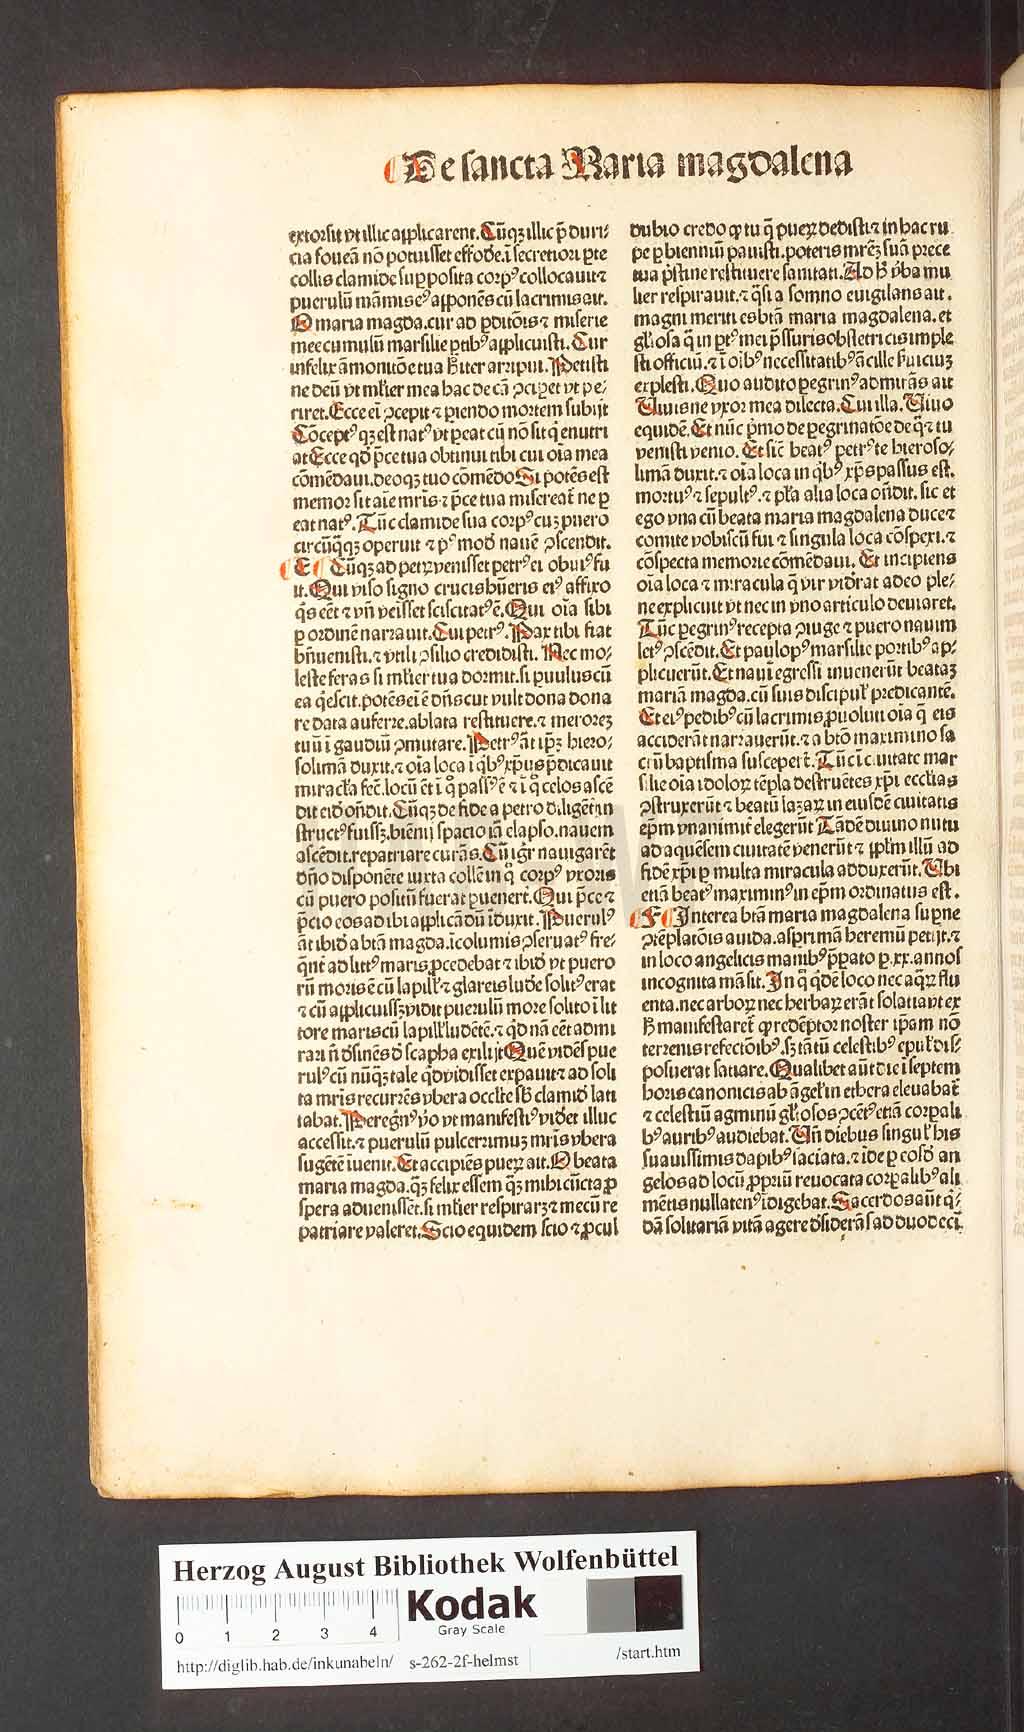 De sancta Maria magdalena
extorsit vt illic applicarent. Cūqȝ illic p̄ duri⸗
cia foueā nō potuissēt effodē. ī secretiori pte
collis clamide supposita corpꝰ collocauit ⁊
puerulū māmis eꝰ appone̅s cū lacrimis ait.
O maria magda. cur ad ꝑditōis ⁊ miserie
mee cumulū marsilie ꝑtibꝰ applicuisti. Cur
infelix ā monitōe tua h̄ iter arripui. Petisti
ne deū vt mlier mea hac de cā ↄciꝑet vt pe⸗
riret. Ecce ei ↄcepit ⁊ pariendo mortem subijt
Cōceptꝰ qȝ est natꝰ vt ꝑeat cū nō sit q̇ enutri
at Ecce qd̄ p̄ce tua obtinui tibi cui oīa mea
cōmēdaui. deoqȝ tuo cōmēdo Si potēs est
memor sit aīe mr̄is ⁊ p̄ce tua misereat̄ ne ꝑ
eat natꝰ. Tūc clamide sua corpꝰ cuȝ puero
circūq̄qȝ operuit ⁊ pꝰ mod̄ nauē ↄscendit.
E Cūqȝ ad petrȝ venisset petrꝰ ei obuiꝰ fu
it. Qui viso signo crucis hūeris eiꝰ affixo
q̇s eēt ⁊ vn̄ veisset sciscitatꝰ ē. Qui oīa sibi
ꝑ ordinē narrauit. Cui petrꝰ. Pax tibi fiat
bn̄ venisti. ⁊ vtili ↄsilio credidisti. Nec mo⸗
leste feras si mlier tua dormit. si ꝑuulus cū
ea q̇escit. potēs ei ē dn̄s cui vult dona dona
re data auferre. ablata restituere. ⁊ merorēȝ
tuū ī gaudiū ↄmutare. Petrꝰ āt ip̄ȝ hiero⸗
solimā duxit. ⁊ oīa loca ī q̇bꝰ xp̄us p̄dicauit
miracl̄a fec̄. locū ēt ī q̊ passꝰ ē ⁊ ī q̊ celos ascē
dit eid̄ on̄dit. Cūqȝ de fide a petro diligēt̄ in
structꝰ fuissȝ. biēnij spacio iā elapso. nauem
ascēdit. repatriare curās. Cū igr̄ nauigarēt
dn̄o disponēte iuxta collē in q̊ corpꝰ vxoris
cū puero positū fuerat puenert̄. Qui p̄ce ⁊
p̄cio eos ad ibi applicādū īduxit. Puerulꝰ
āt ibid̄ a btā magda. īcolumis ↄseruatꝰ fre⸗
q̄nt̄ ad littꝰ maris ꝓcedebat ⁊ ibid̄ vt puero
rū moris ē cū lapill̄ ⁊ glareis lud̄e solitꝰ erat
⁊ cū applicuissȝ vidit puerulū more solito ī lit
tore maris cū lapill̄ ludētē. ⁊ q̇d nā eēt admi
rari n̄ d̄sinēs d̄ scapha exilijt Quē vidēs pue
rulꝰ cū nūqȝ tale q̇d vidisset expauit ⁊ ad soli
ta mr̄is recurrēs vbera occlte sb̄ clamid̄ lati
tabat. Peregn̄ꝰ v̊o vt manifestiꝰ vid̄et illuc
accessit. ⁊ puerulū pulcerrimuȝ mr̄is vbera
sugētē īuenit. Et accipiēs puerȝ ait. O beata
maria magda. q̄ȝ felix essem q̄ȝ mihi cūcta ꝓ
spera aduenissēt. si mlier respirarȝ ⁊ mecū re
patriare valeret. Scio equidem scio ⁊ ꝓcul
dubio credo ꝙ tu q̄ puerȝ dedisti ⁊ in hac ru
pe ꝑ bienniū pauisti. poteris mr̄eȝ suā prece
tua p̄stine restituere sanitati. Ad h̄ v̄ba mu
lier respirauit. ⁊ q̄si a somno euigilans ait.
magni meriti es btā maria magdalena. et
gl̄iosa q̄ in ꝑtꝰ mei p̄ssuris obstetricis imple
sti officiū. ⁊ ī oībꝰ necessitatibꝰ ācille s̄uiciuȝ
explesti. Quo audito ꝑegrinꝰ admirās ait
Viuis ne vxor mea dilecta. Cui illa. Viuo
equidē. Et nūc p̄mo de ꝑegrinatōe de q̄ ⁊ tu
venisti venio. Et sic̄ beatꝰ petrꝰ te hieroso⸗
limā duxit. ⁊ oīa loca in q̇bꝰ xp̄s passus est.
mortuꝰ ⁊ sepultꝰ. ⁊ pl̄a alia loca on̄dit. sic et
ego vna cū beata maria magdalena duce ⁊
comite vobiscū fui ⁊ singula loca cōspexi. ⁊
cōspecta memorie cōmēdaui. Et incipiens
oīa loca ⁊ miracula q̄ vir vid̄rat adeo ple⸗
ne explicuit vt nec in vno articulo deuiaret.
Tūc ꝑegrinꝰ recepta ↄiuge ⁊ puero nauim
letꝰ ↄscēdit. Et paulopꝰ marsilie portibꝰ ap⸗
plicuerūt. Et nauī egressi inuenerūt beataȝ
mariā magda. cū suis discipul̄ predicantē.
Et eiꝰ pedibꝰ cū lacrimis ꝓuoluti oīa q̄ eis
acciderāt narrauerūt. ⁊ a btō maximino sa
crū baptisma suscepert̄. Tūc ī ciuitate mar
silie oīa idolorȝ tēpla destruētes xp̄i ecclias
ↄstruxerūt ⁊ beatū lazarȝ in eiusdē ciuitatis
ep̄m vnanimit̄ elegerūt Tādē diuino nutu
ad aquēsem ciuitatē venerūt ⁊ ppl̄m illū ad
fidē xp̄i ꝑ multa miracula adduxerūt. Vbi
etiā beatꝰ maximinꝰ in ep̄m ordinatus est.
F Interea btā maria magdalena suꝑne
ↄtēplatōis auida. asprimā heremū petijt. ⁊
in loco angelicis manibꝰ p̄pato ꝑ. xx. annos
incognita māsit. In q̊ q̇dē loco nec aq̄rȝ flu
enta. nec arborȝ nec herbarȝ erāt solatia vt ex
h̄ manifestaret̄ ꝙ redēptor noster ip̄am nō
terrenis refectōibꝰ. sȝ tātū celestibꝰ epul̄ dis⸗
posuerat satiare. Qualibet aūt die ī septem
horis canonicis ab āgel̄ in ethera eleuabat̄
⁊ celestiū agminū gl̄iosos ↄcētꝰ etiā corpali
bꝰ auribꝰ audiebat. Vn̄ diebus singul̄ his
suauissimis dapibꝰ saciata. ⁊ īde ꝑ eosd̄ an
gelos ad locū ꝓpriū reuocata corpalibꝰ ali
mētis nullatenꝰ īdigebat. Sacerdos aūt q̇⸗
dā solitariā vitā agere d̄siderās ad duodeci
Herzog August Bibliothek Wolfenbüttel
0 1 2 3 4
Kodak
Gray Scale
http://diglib.hab.de/inkunabeln/ s-262-2f-helmst /start.htm